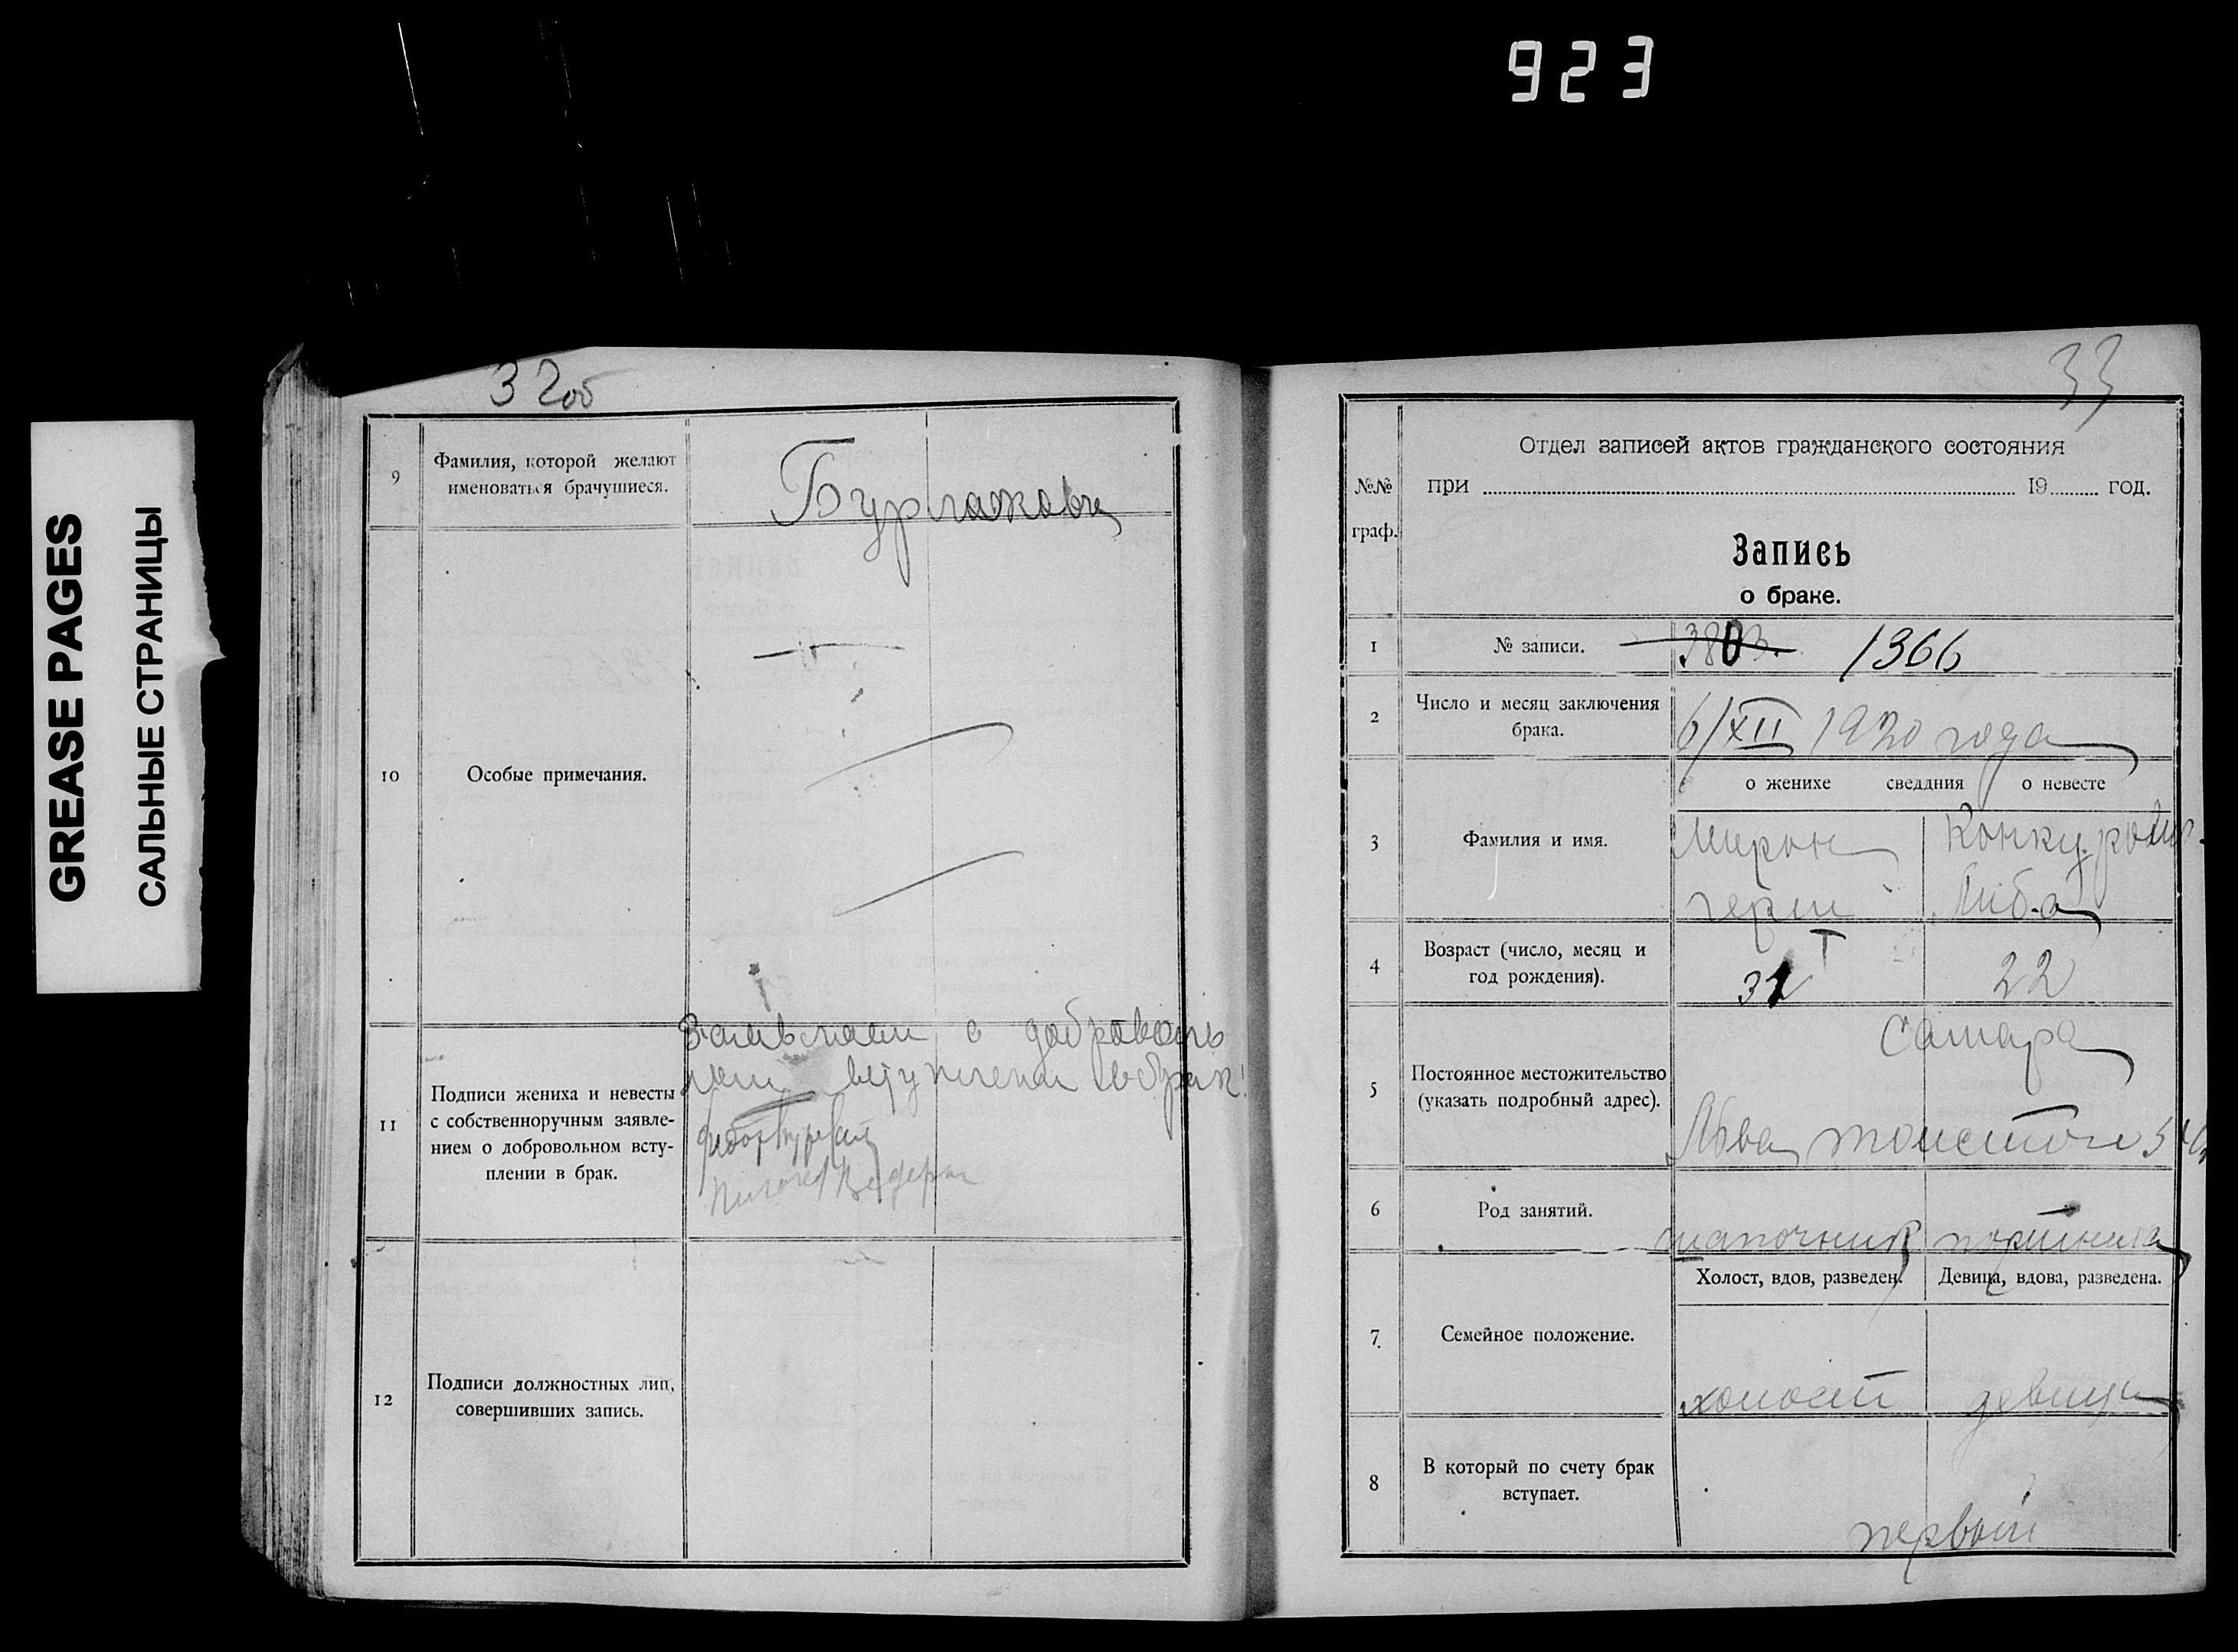 923
GREASE PAGES
САЛЬНЫЕ СТРАНИЦЫ
32об
9
Фамилия, которой желают
именоваться брачущиеся.
Бурлаковы
10
Особые примечания.
11
Подписи жениха и невесты
с собственноручным заявле-
нием о добровольном всту-
плении в брак.
Заявляем о доброволь
ном вступлении в брак
12
Подписи должностных лиц,
совершивших запись.
33
№№
граф.
Отдел записей актов гражданского состояния
при 19 год.
Запись
о браке.
1
№ записи.
3803. 1366
2
Число и месяц заключения
брака.
6/XII 1920 года
о женихе сведдния о невесте
3
Фамилия и имя.
Мирон
Герш
Либа
4
Возраст (число, месяц и
год рождения).
22
5
Постоянное местожительство
(указать подробный адрес).
Самара
Льва Толстого
6
Род занятий.
шапочник
портниха
Холост, вдов, разведен.
Девица, вдова, разведена.
7
Семейное положение.
холост
девица
8
В который по счету брак
вступает.
первый